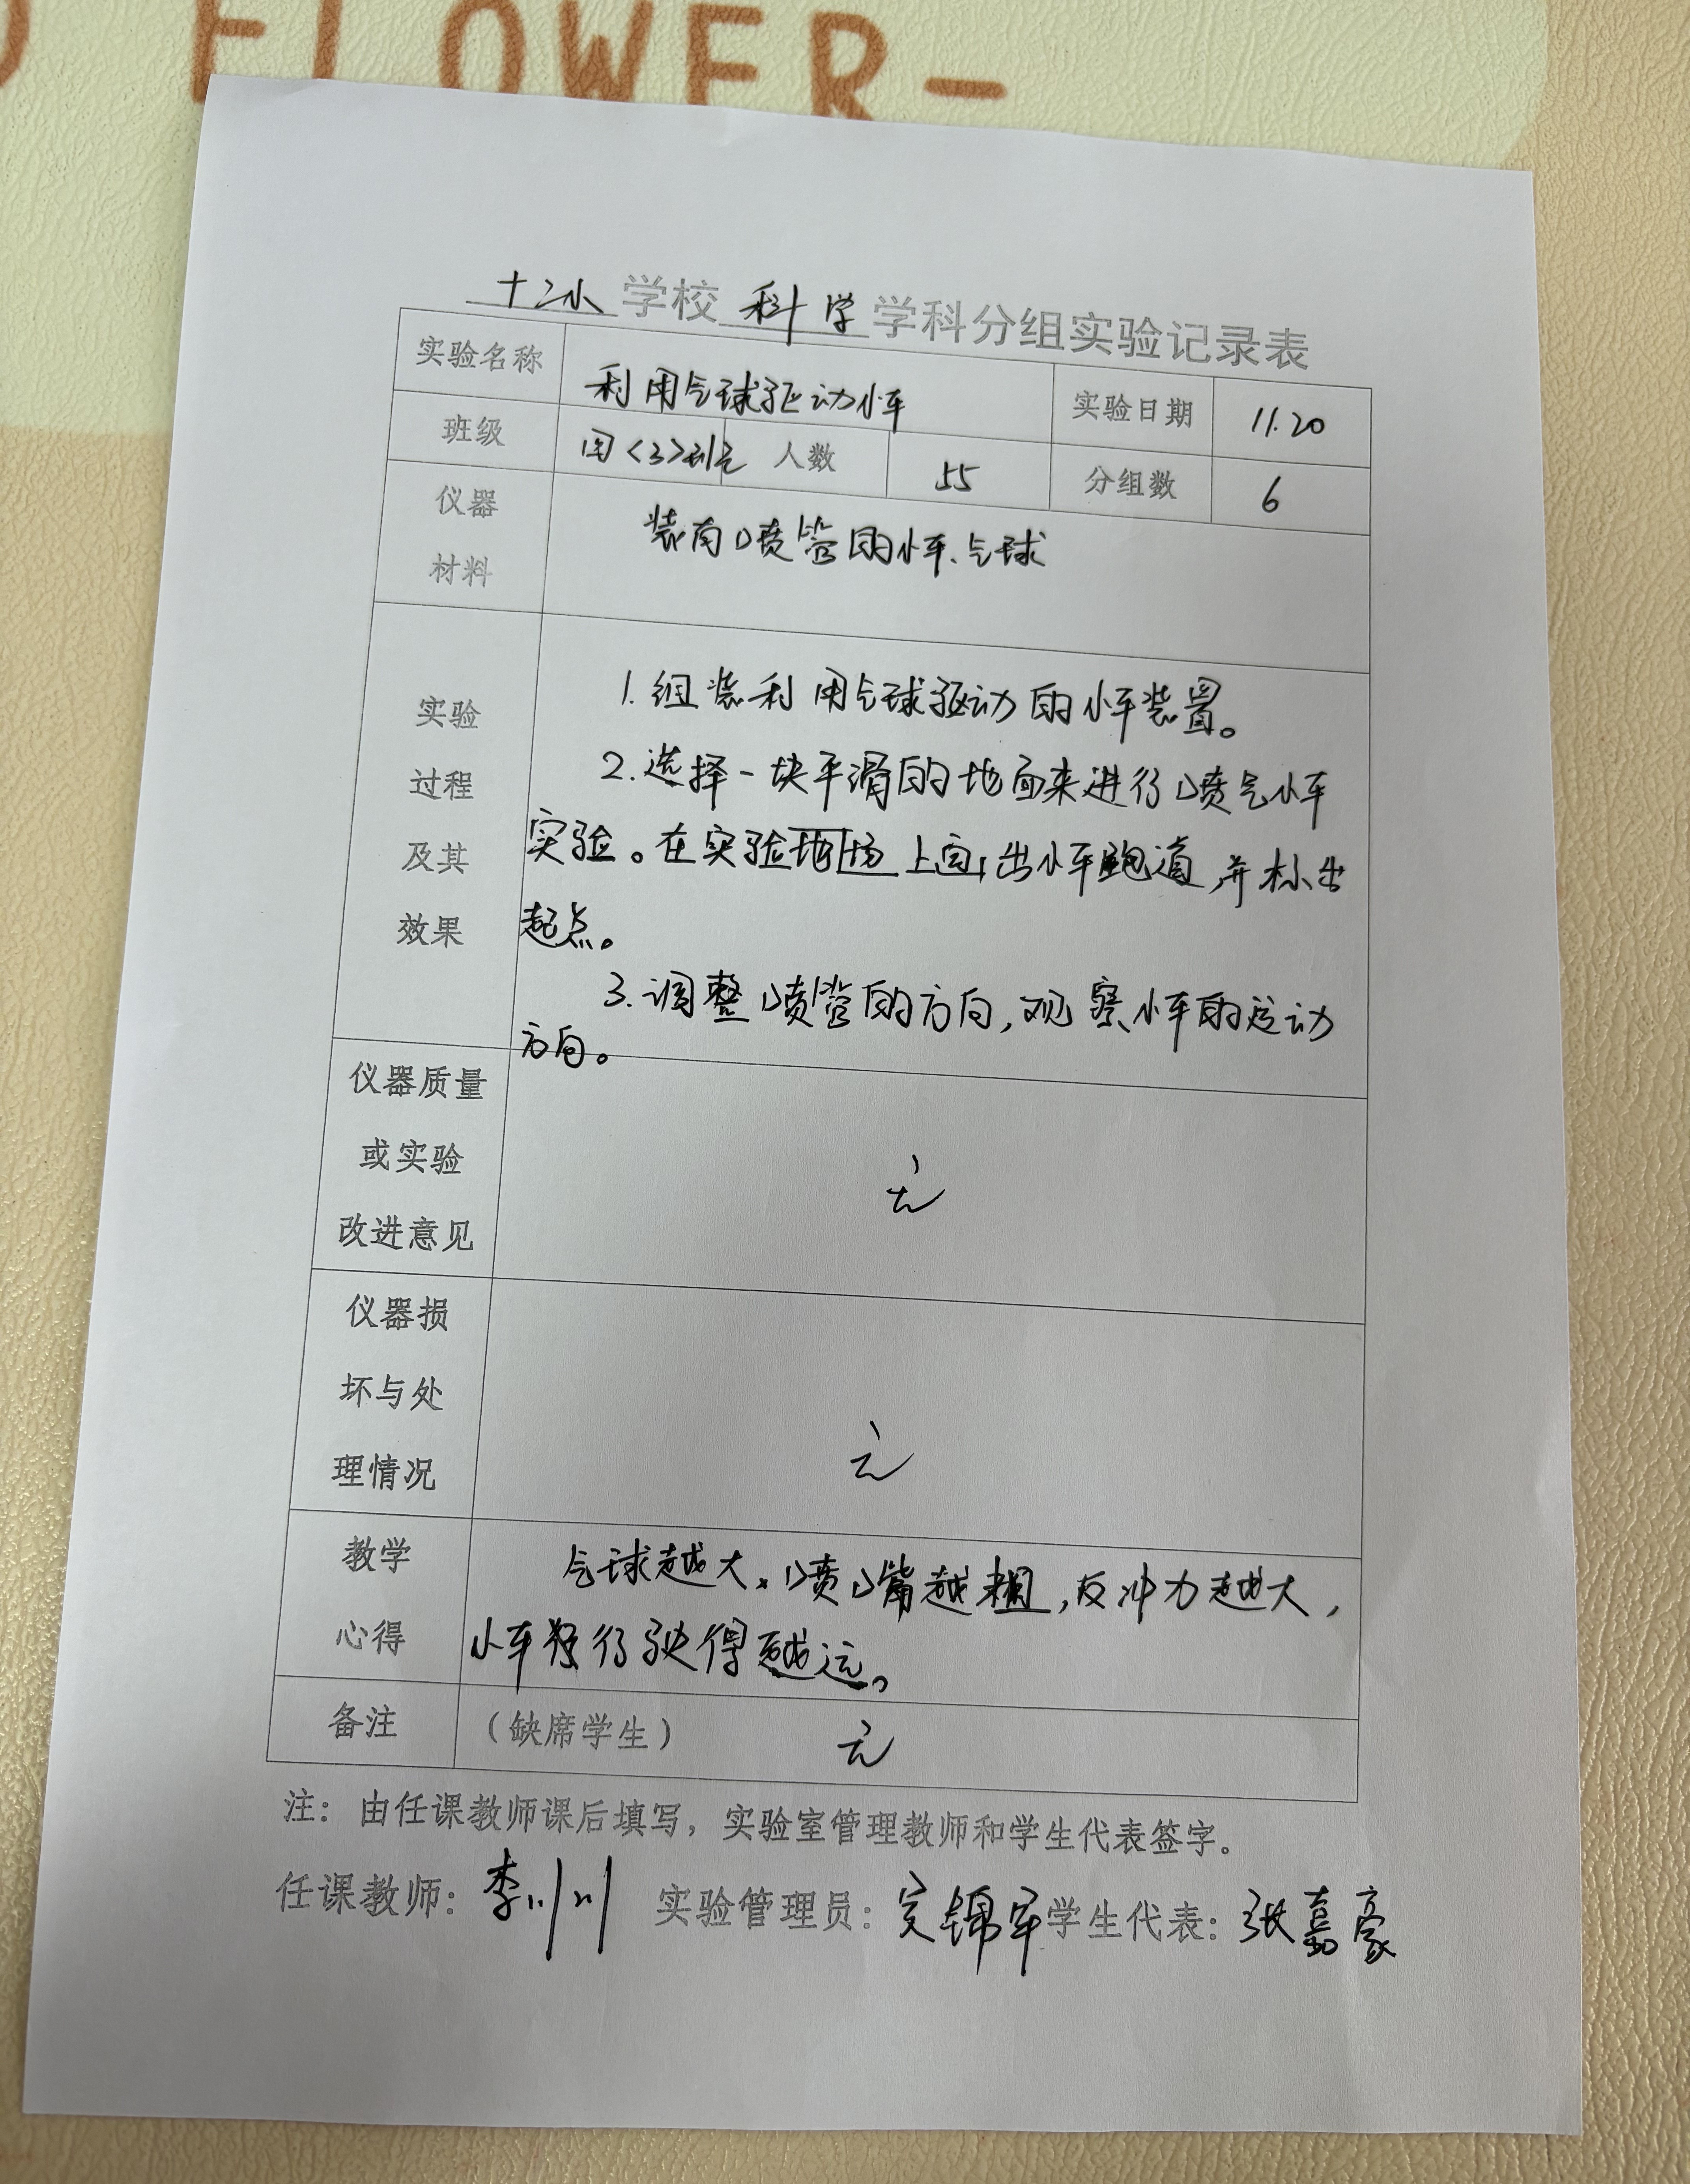 FLOWER-
十二小学校科学学科分组实验记录表
实验名称 利用气球驱动小车 实验日期 11.20
班级 四<3>班 人数 55 分组数 6
仪器材料 装有喷管的小车、气球
实验过程及其效果
1.组装利用气球驱动的小车装置。
2.选择一块平滑的地面来进行喷气小车
实验。在实验场上画出小车跑道,并标出
起点。
3.调整喷管的方向,观察小车的运动
方向。
仪器质量或实验改进意见 无
仪器损坏与处理情况 无
教学心得
气球越大、喷嘴越粗,反冲力越大,
小车行驶得越远。
备注 (缺席学生) 无
注:由任课教师课后填写,实验室管理教师和学生代表签字。
任课教师:李川川 实验管理员:锦军 学生代表:张嘉豪